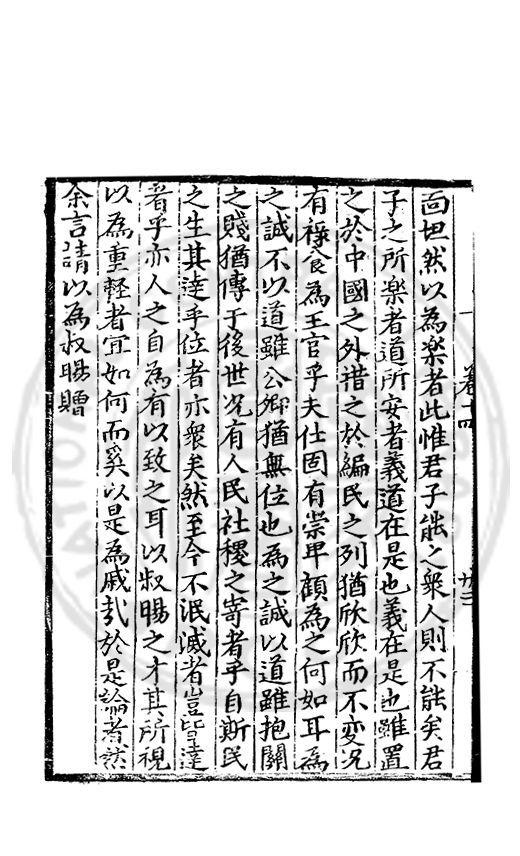 靣坦然以為樂者此惟君子能之衆人則不能矣君
子之所楽者道所安者義道在是也義在是也雖置
之於中國之外措之於編民之列猶欣欣而不变况
有祿食為王官乎夫仕固有崇卑顧為之何如耳為
之誠不以道雖公卿猶無位也為之誠以道雖抱關
之賤猶傳于後世况有人民社稷之寄者乎自斯民
之生其達乎位者亦衆矣然至今不泯滅者豈皆達
者乎亦人之自為有以致之耳以叔賜之才其所視
以為重輕者宜如何而奚以是為戚㦲於是論者韙
余言請以為叔賜贈
卷十四
廿三